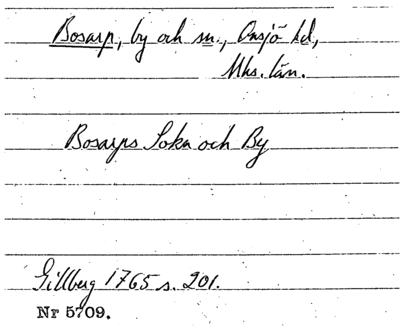 Bosarp, by och sn., Onsjö hd,
Mhs. län.
Bosarps Sokn och By
Gillberg 1765 s. 201.
Nr 5709.